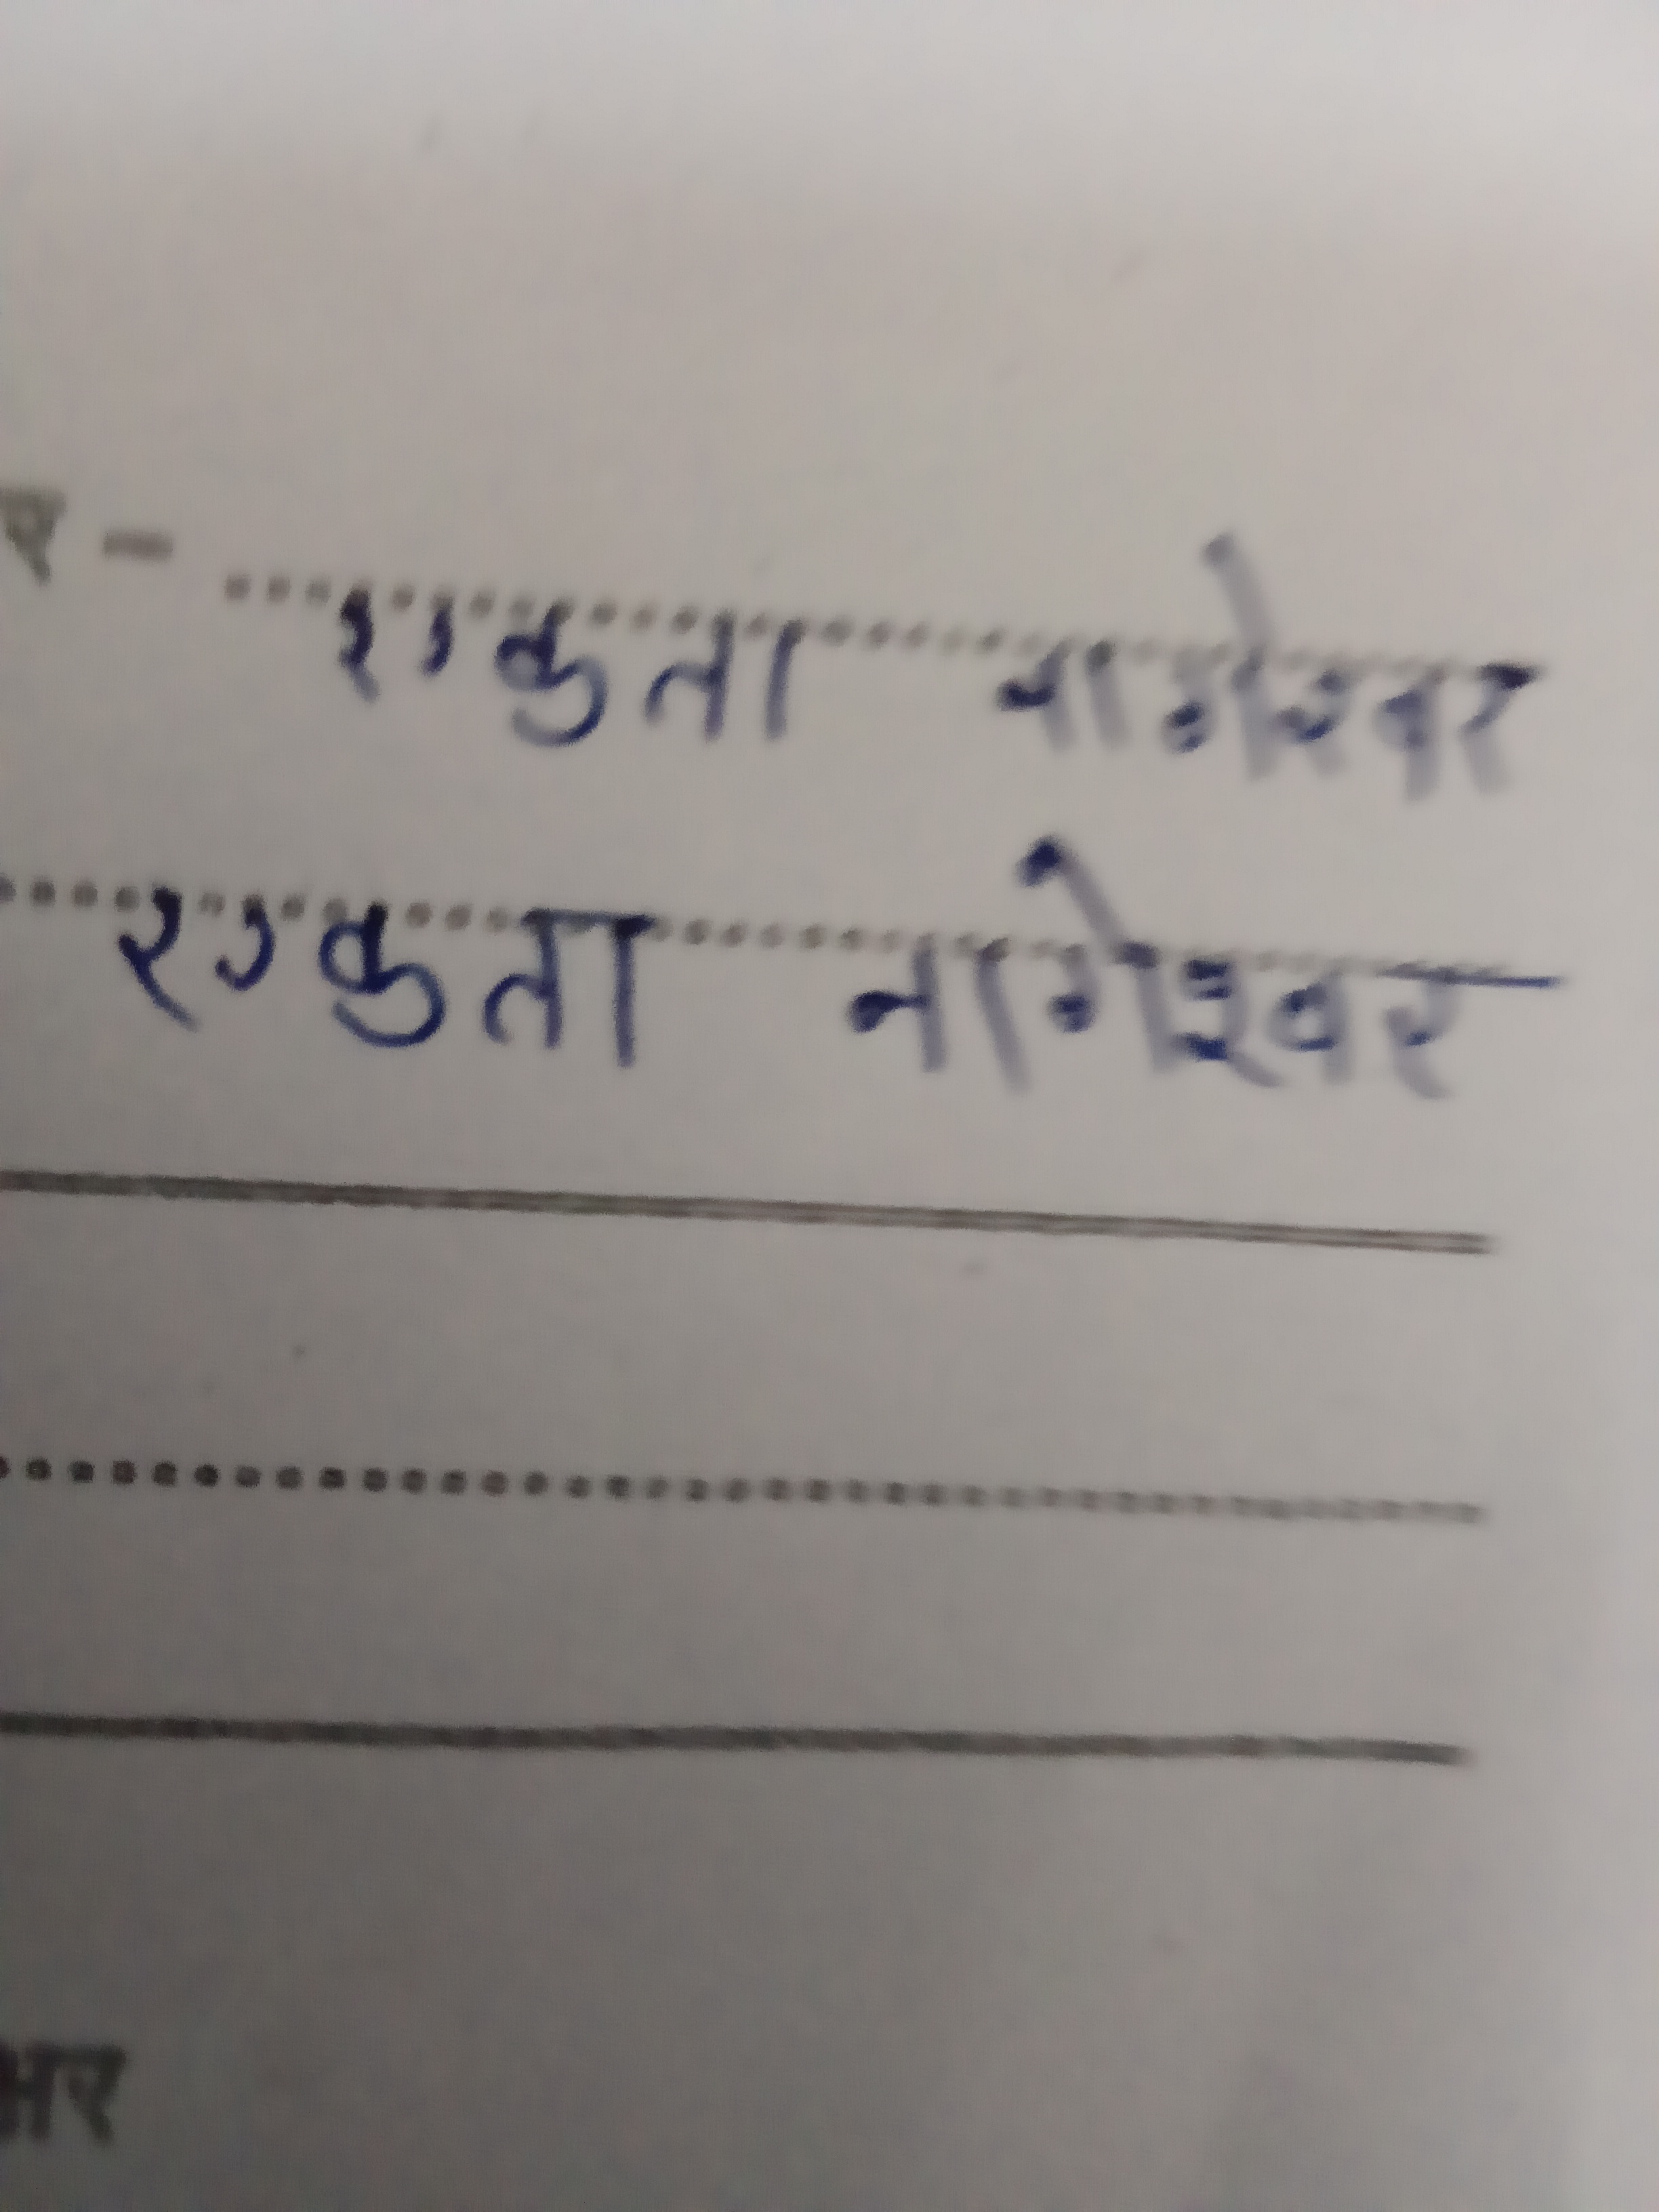 र - एकता नागेश्वर
एकता नागेश्वर
क्षर